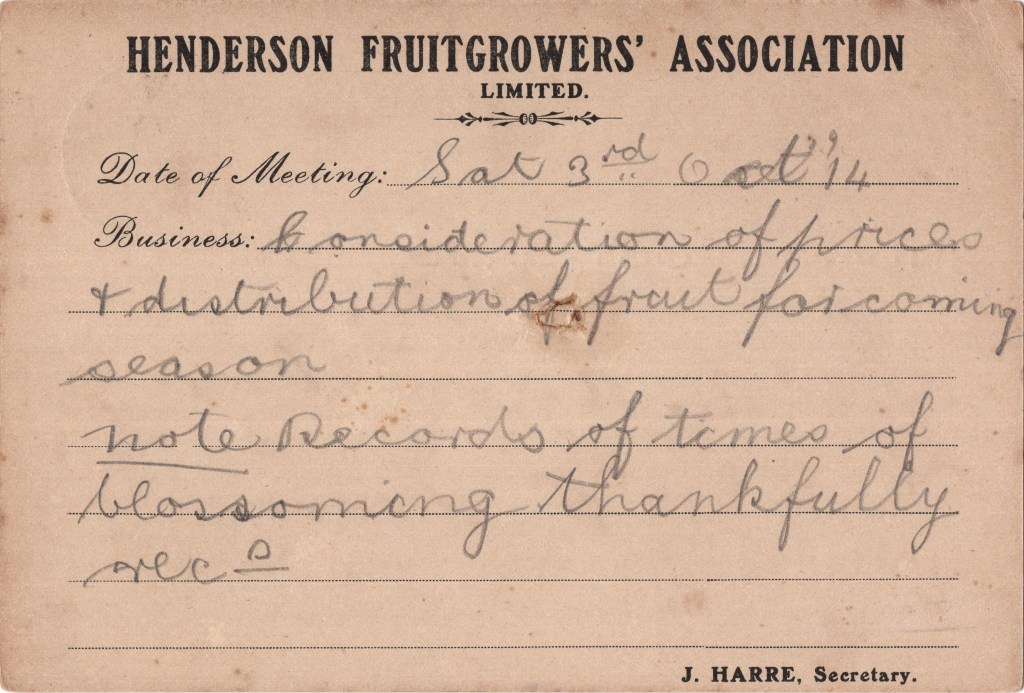 HENDERSON FRUITGROWERS' ASSOCIATION
LIMITED.
Date of Meeting: Sat 3rd Oct '14
Business: Consideration of prices
& distribution of fruit for coming
season
note Records of times of
blossoming thankfully
recd
J. HARRE, Secretary.